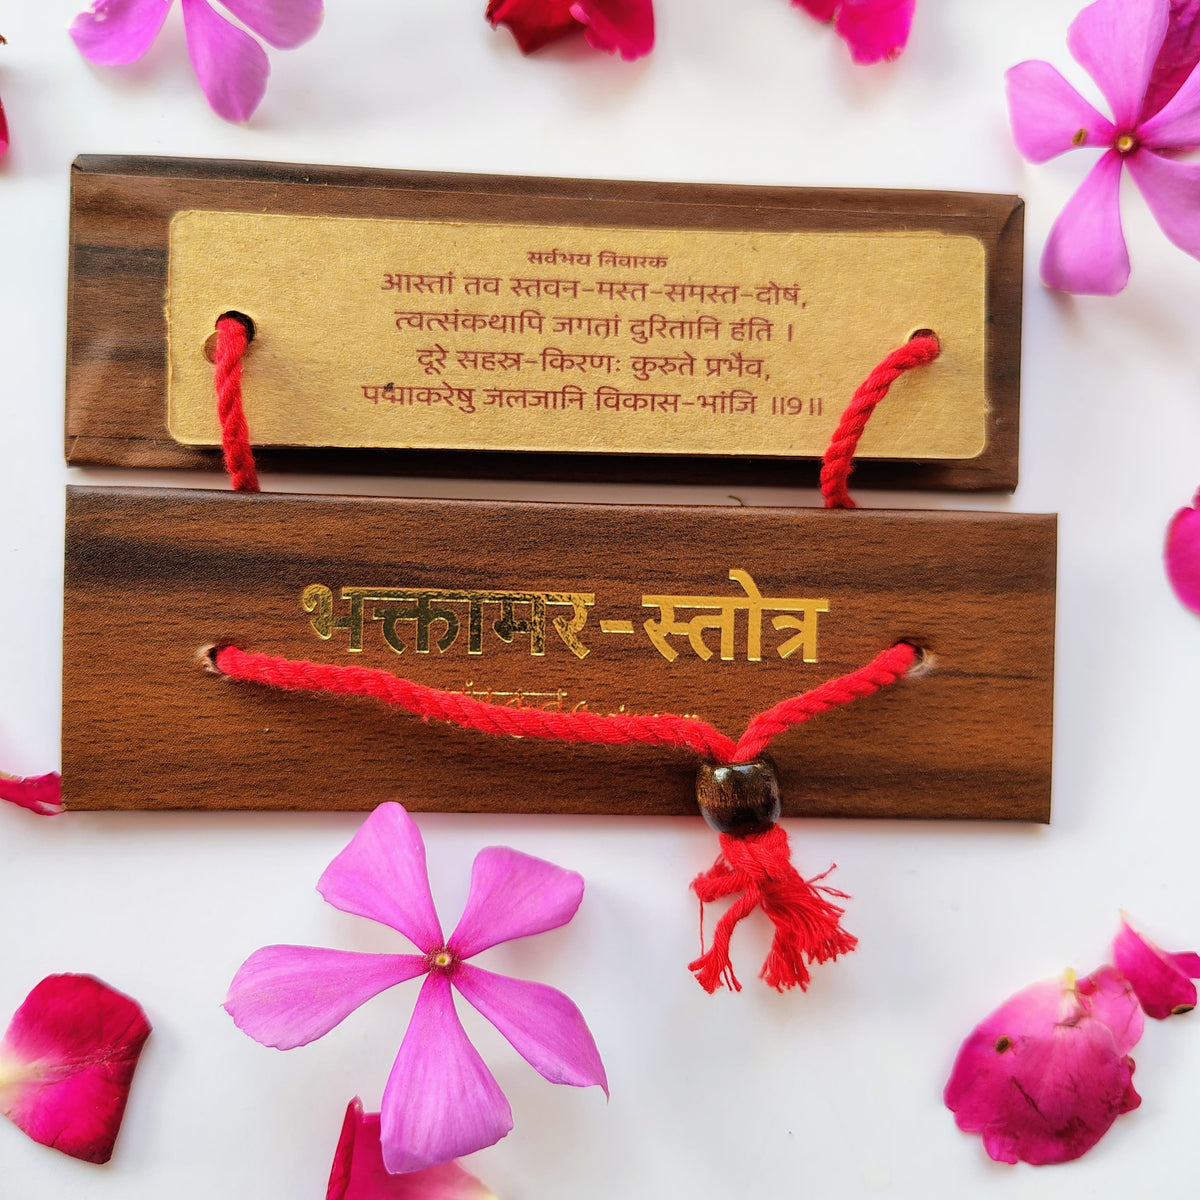 सर्वभय निवारक
आस्तां तव स्तवन-मस्त-समस्त-दोषं,
त्वत्संकथापि जगतां दुरितानि हंति ।
दूरे सहस्त्र-किरणः कुरुते प्रभैव,
पद्माकरेषु जलजानि विकास-भांजि ॥9॥
भक्तामर-स्तोत्र